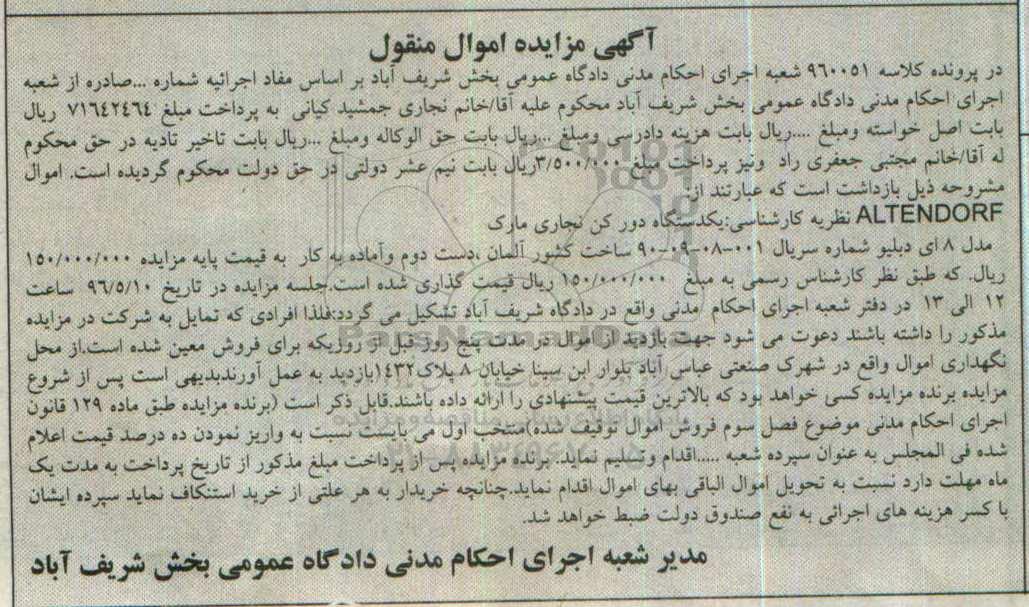 آگهی مزایده اموال منقول
در پرونده کلاسه ۹۶۰۰۵۱ شعبه اجرای احکام مدنی دادگاه عمومی بخش شریف آباد بر اساس مفاد اجرائیه شماره ...صادره از شعبه
اجرای احکام مدنی دادگاه عمومی بخش شریف آباد محکوم علیه آقا/خانم نجاری جمشید کیانی به پرداخت مبلغ ۷۱۶۴۲۴۶۴ ریال
بابت اصل خواسته ومبلغ ....ریال بابت هزینه دادرسی ومبلغ ...ریال بابت حق الوکاله ومبلغ ...ریال بابت تاخیر تادیه در حق محکوم
له آقا/خانم مجتبی جعفری راد ونیز پرداخت مبلغ ۳/۵۰۰/۰۰۰ریال بابت نیم عشر دولتی در حق دولت محکوم گردیده است. اموال
مشروحه ذیل بازداشت است که عبارتند از:
ALTENDORF نظریه کارشناسی:یکدستگاه دور کن نجاری مارک
مدل ۸ ای دبلیو شماره سریال ۰۰۱-۰۸-۰۹-۹۰ ساخت کشور آلمان ،دست دوم وآماده به کار به قیمت پایه مزایده ۱۵۰/۰۰۰/۰۰۰
ریال. که طبق نظر کارشناس رسمی به مبلغ ۱۵۰/۰۰۰/۰۰۰ ریال قیمت گذاری شده است.جلسه مزایده در تاریخ ۹۶/۵/۱۰ ساعت
۱۲ الی ۱۳ در دفتر شعبه اجرای احکام مدنی واقع در دادگاه شریف آباد تشکیل می گردد:فلذا افرادی که تمایل به شرکت در مزایده
مذکور را داشته باشند دعوت می شود جهت بازدید از اموال در مدت پنج روز قبل از روزیکه برای فروش معین شده است.از محل
نگهداری اموال واقع در شهرک صنعتی عباس آباد بلوار ابن سینا خیابان ۸ پلاک۱۴۳۲(بازدید به عمل آورندبدیهی است پس از شروع
مزایده برنده مزایده کسی خواهد بود که بالاترین قیمت پیشنهادی را ارائه داده باشند.قابل ذکر است (برنده مزایده طبق ماده ۱۲۹ قانون
اجرای احکام مدنی موضوع فصل سوم فروش اموال توقیف شده)منتخب اول می بایست نسبت به واریز نمودن ده درصد قیمت اعلام
شده فی المجلس به عنوان سپرده شعبه .....اقدام وتسلیم نماید. برنده مزایده پس از پرداخت مبلغ مذکور از تاریخ پرداخت به مدت یک
ماه مهلت دارد نسبت به تحویل اموال الباقی بهای اموال اقدام نماید.چنانچه خریدار به هر علتی از خرید استنکاف نماید سپرده ایشان
با کسر هزینه های اجرائی به نفع صندوق دولت ضبط خواهد شد.
مدیر شعبه اجرای احکام مدنی دادگاه عمومی بخش شریف آباد